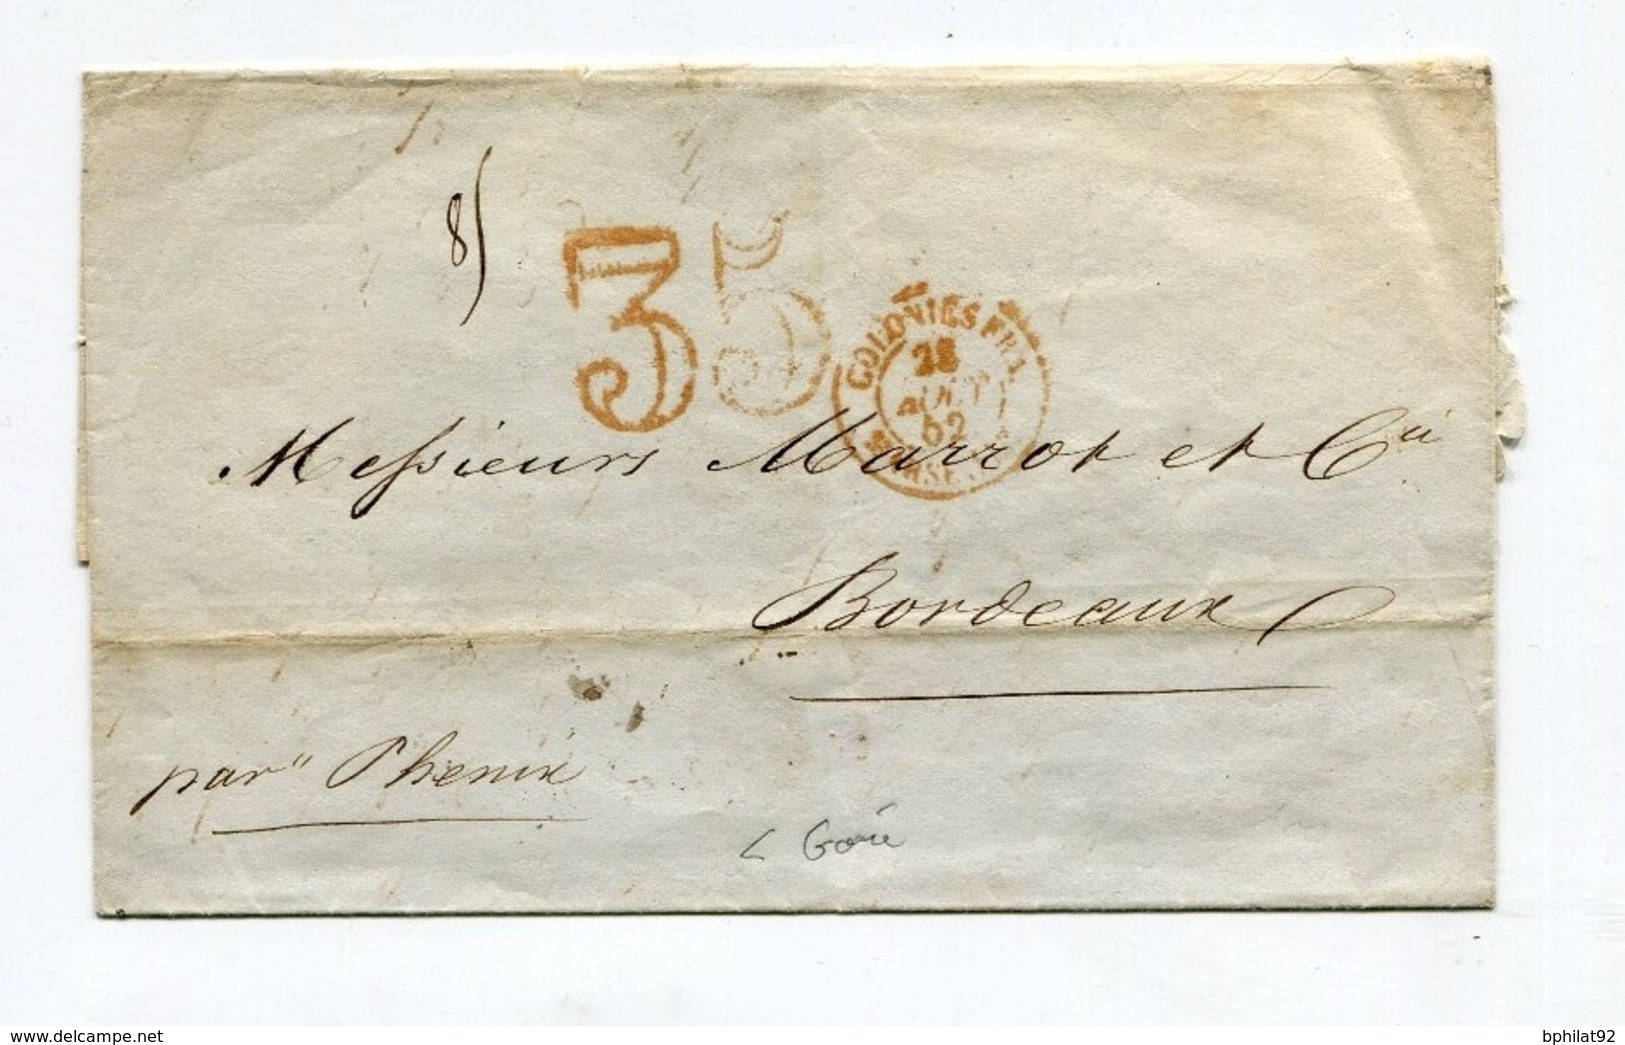 8)
35
COLONIES FRA
28
AOUT
62
MARSEILLE
Messieurs Marrot et Cie
Bordeaux
par" Phenix
Gorée
delcampe.net
bphilat92